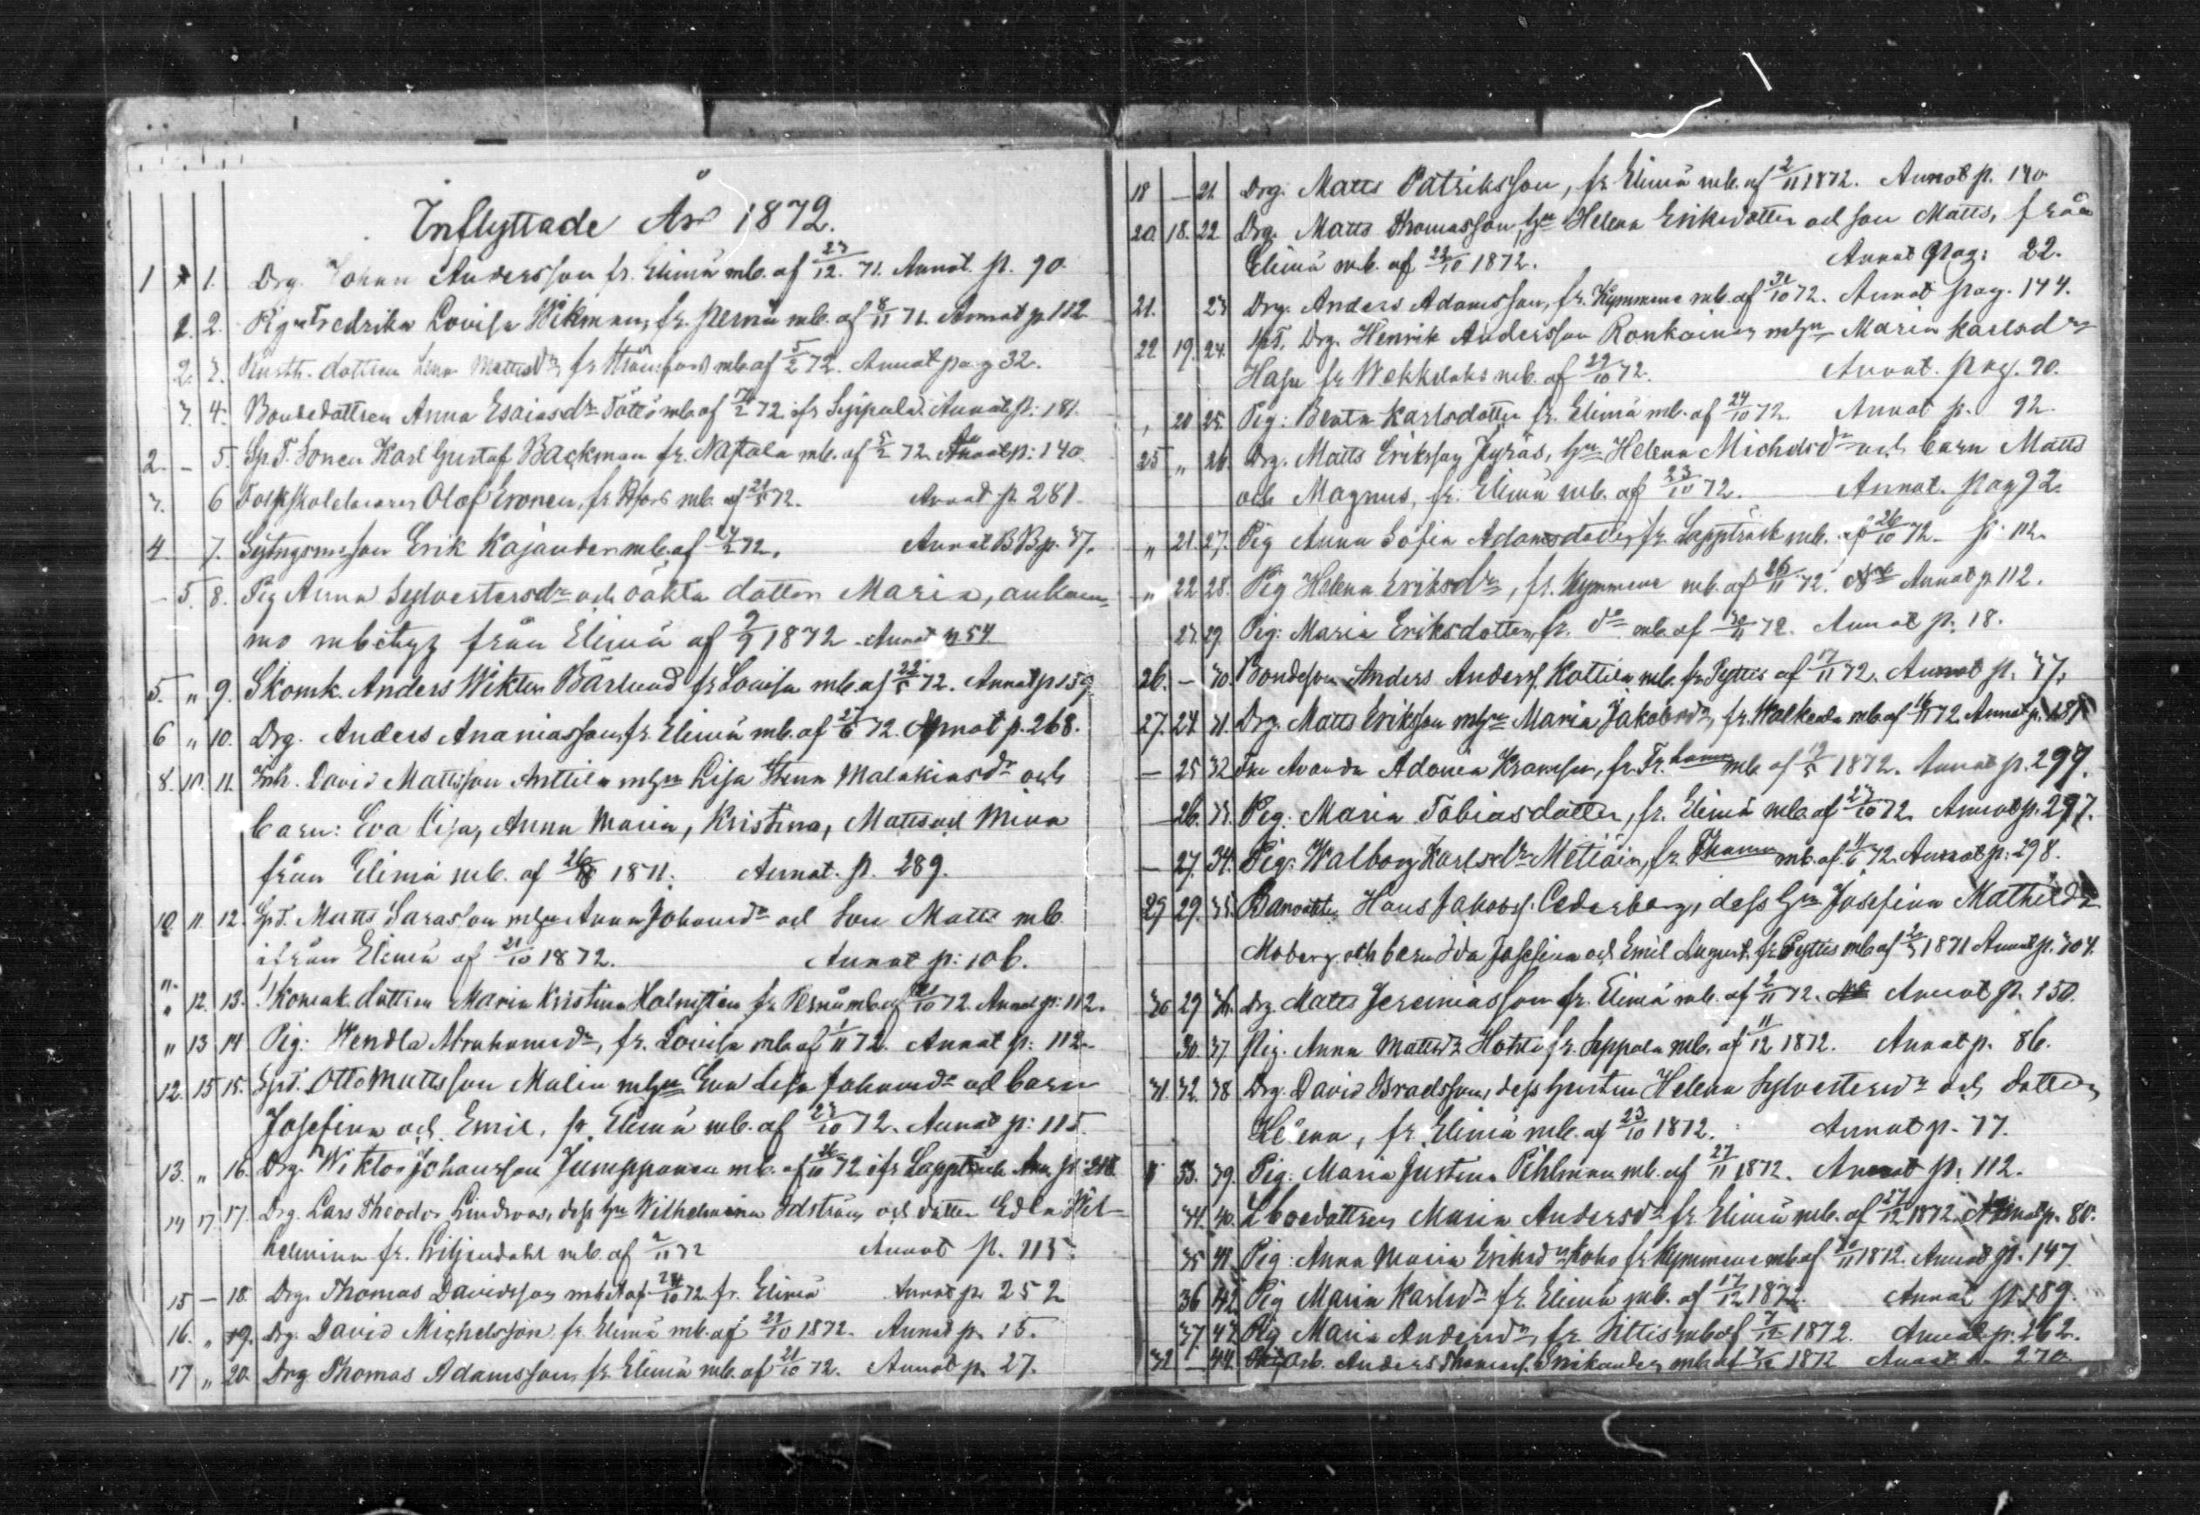 Inflyttade År 1872.
1 1. Drg. Johan Andersson fr. Elimä mb. af 23/12. 71. Annot. p. 90.
1. 2. Pig. Fredrika Lovisa Wikman, fr. Perno mb. af 8/11 71. Annot p. 112
2. 3. dottren Lena Mattsdr fr Strömfors mb af 5/2 72. Annot pag 32.
3. 4. Bondedottren Anna Esaiasdr mb. af 2 72 ifr Sippola. Annot p: 181.
2. - 5. Sp. T. Sonen Karl Gustaf Backman fr. Nastola mb. af 5/2 72. Annot p: 140.
3. 6 Folkskoleläraren Olof Eronen, fr. mb af 21/5 72. Annot p. 281.
4 7. son Erik Kajander mb. af 72. Annot B B p. 37.
- 5. 8. Pig Anna Sylvestersdr och oäkta dotter Maria, ankom-
mo från Elimä af 9/9 1872 Annot p 54
5. " 9. Skomk. Anders Wiktor Bärlund fr Lovisa mb. af 22/5 72. Annot p 139.
6 " 10. Drg. Anders Ananiasson, fr. Elimä mb. af 27/6 72. Annot p. 268.
8. 10. 11. Inh. David Mattsson Anttila m hu Lisa Stina Malakiasdr och
barn: Eva Lisa, Anna Maria, Kristina, Matts och Mina
från Elimä mb. af 1871. Annot. p. 289.
10. 11. 12. Sp. T. Matts Sarasson m hu Anna Johansdr och Son Matts mb.
ifrån Elimä af 21/10 1872. Annot p: 106.
" 12. 13. Skomak. dottren Maria Kristina Holmsten fr Perno mb af 21/10 72. Annot p: 112.
" 13 14 Pig: Wendla Abrahamsdr, fr. Lovisa mb. af 1/11 72. Annot p: 112.
12. 15 15. Sp. T. Otto Mattsson Malin m hu Eva Lisa Johansdr och barn
Josefina och Emil, fr. Elimä mb. af 23/10 72. Annot p: 115.
13. " 16. Drg. Wiktor Johansson Jumppanen mb. af 26/11 72 ifr Lappträsk Ann p:
14 17. 17. Drg. Lars Theodor Lindroos, dess hu Wilhelmina Idström och dotter Edla Wil-
helmina fr. Liljendahl mb. af 2/11 72 Annot p. 115.
15 - 18. Drg. Thomas Davidsson mb af 24/10 72 fr. Elimä Annot p. 252
16. " 19. Drg. David Michelsson fr. Elimä mb. af 22/10 1872. Annot p. 15.
17 " 20. Drg Thomas Adamsson, fr. Elimä mb. af 21/10 72. Annot p. 27.
18 - 21 Drg. Matts Patriksson, fr. Elimä mb. af 2/11 1872. Annot p. 140.
20. 18. 22 Drg. Matts Thomasson, hu Helena Eriksdotter och son Matts, från
Elimä mb. af 22/10 1872. Annot pag: 22.
21. 23 Drg. Anders Adamsson, fr. Kymmene mb. af 31/10 72. Annot pag. 144.
22 19. 24. Drg. Henrik Andersson Ronkainen m hu Maria Karlsdr
fr Wekkelaks mb. af 29/10 72. Annot. pag. 90.
20 25. Pig: Beata Karlsdotter fr. Elimä mb. af 24/10 72 Annot p. 92.
25 " 26 Drg. Matts Eriksson Jyräs, hu Helena Michelsdr och barn Matts
och Magnus, fr. Elimä mb. af 23/10 72. Annot. pag 92.
" 21. 27. Pig Anna Sofia Adamsdotter, fr. Lappträsk mb. af 26/10 72. p: 112.
" 22 28. Pig Helena Eriksdr, fr. Kymmene mb. af 26/11 72. Annot p 112.
23 29. Pig: Maria Eriksdotter, fr. do mb. af 30/11 72. Annot p. 18.
26. - 30. Bondeson Anders Anders. Kottila mb. fr. Pyttis af 17/11 72. Annot p. 37.
27. 24 31. Drg. Matts Eriksson m hu Maria Jakobsdr, fr. Walkeala mb. af 16/11 72. Annot p.
- 25 32 Adonia fr. mb. af 5 1872. Annot p. 297.
26. 33. Pig. Maria Tobiasdotter, fr. Elimä mb. af 23/10 72. Annot p. 297.
- 27. 34. Pig. Walborg Karlsdr Metiäin, fr mb. af 72. Annot p: 298.
29 29. 35. Hans Jakobs. Cederberg, dess hu Josefina Mathilda
Moberg och barn Ida Josefina och Emil August, fr. Pyttis mb af 1871 Annot p. 304.
30 29 36. Drg Matts Jeremiasson fr. Elimä mb. af 2/11 72. Annot p. 150.
30. 37 Pig. Anna Mattsdr fr. Sippola mb. af 11/12 1872. Annot p. 86.
31. 32. 38 Drg. David Israelsson, dess hustru Helena Sylvestersdr och dotter
Helena, fr. Elimä mb. af 23/10 1872. Annot p. 77.
33. 39. Pig. Maria Justina Pihlman mb. af 27/11 1872. Annot p. 112.
34. 40. Maria Andersdr fr Elimä mb. af 27/12 1872. Annot p. 80.
35 41 Pig: Anna Maria Eriksdr Koho fr Kymmene mb af 1872. Annot p. 147.
36 42 Pig Maria Karlsdr fr Elimä mb. af 17/12 1872. Annot p. 189.
37. 43. Pig Maria Andersdr, fr. Iittis mb af 7/12 1872. Annot p. 262.
32 - 44. Arb. Anders Thomass. mb af 1872 Annot p. 270.